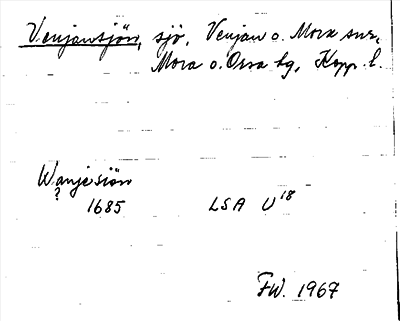 Venjansjön, sjö, Venjan o. Mora snr,
Mora o. Orsa tg, Kopp. l.
Wanjesiön
?
1685 LSA U 18
FW. 1967